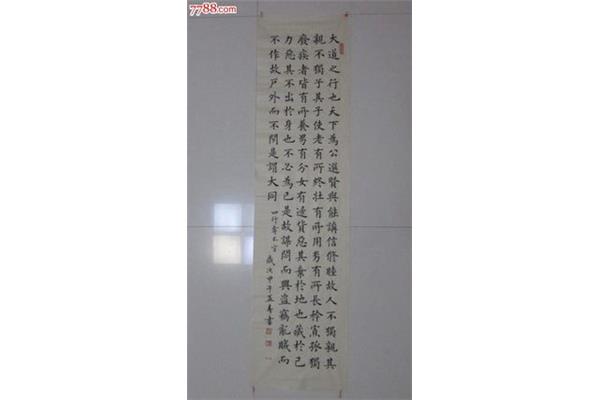 7788.com
大道之行也天下為公選賢與能講信修睦故人不獨親其
親不獨子其子使老有所終壯有所用男有所長矜寡孤獨
廢疾者皆有所養男有分女有貨惡其棄於地也藏於己
力惡其不出於身也不必為己是故謀閉而興盜竊亂賊而
不作故戶外而不閉是謂大同
四行奪不字 歲次甲午書